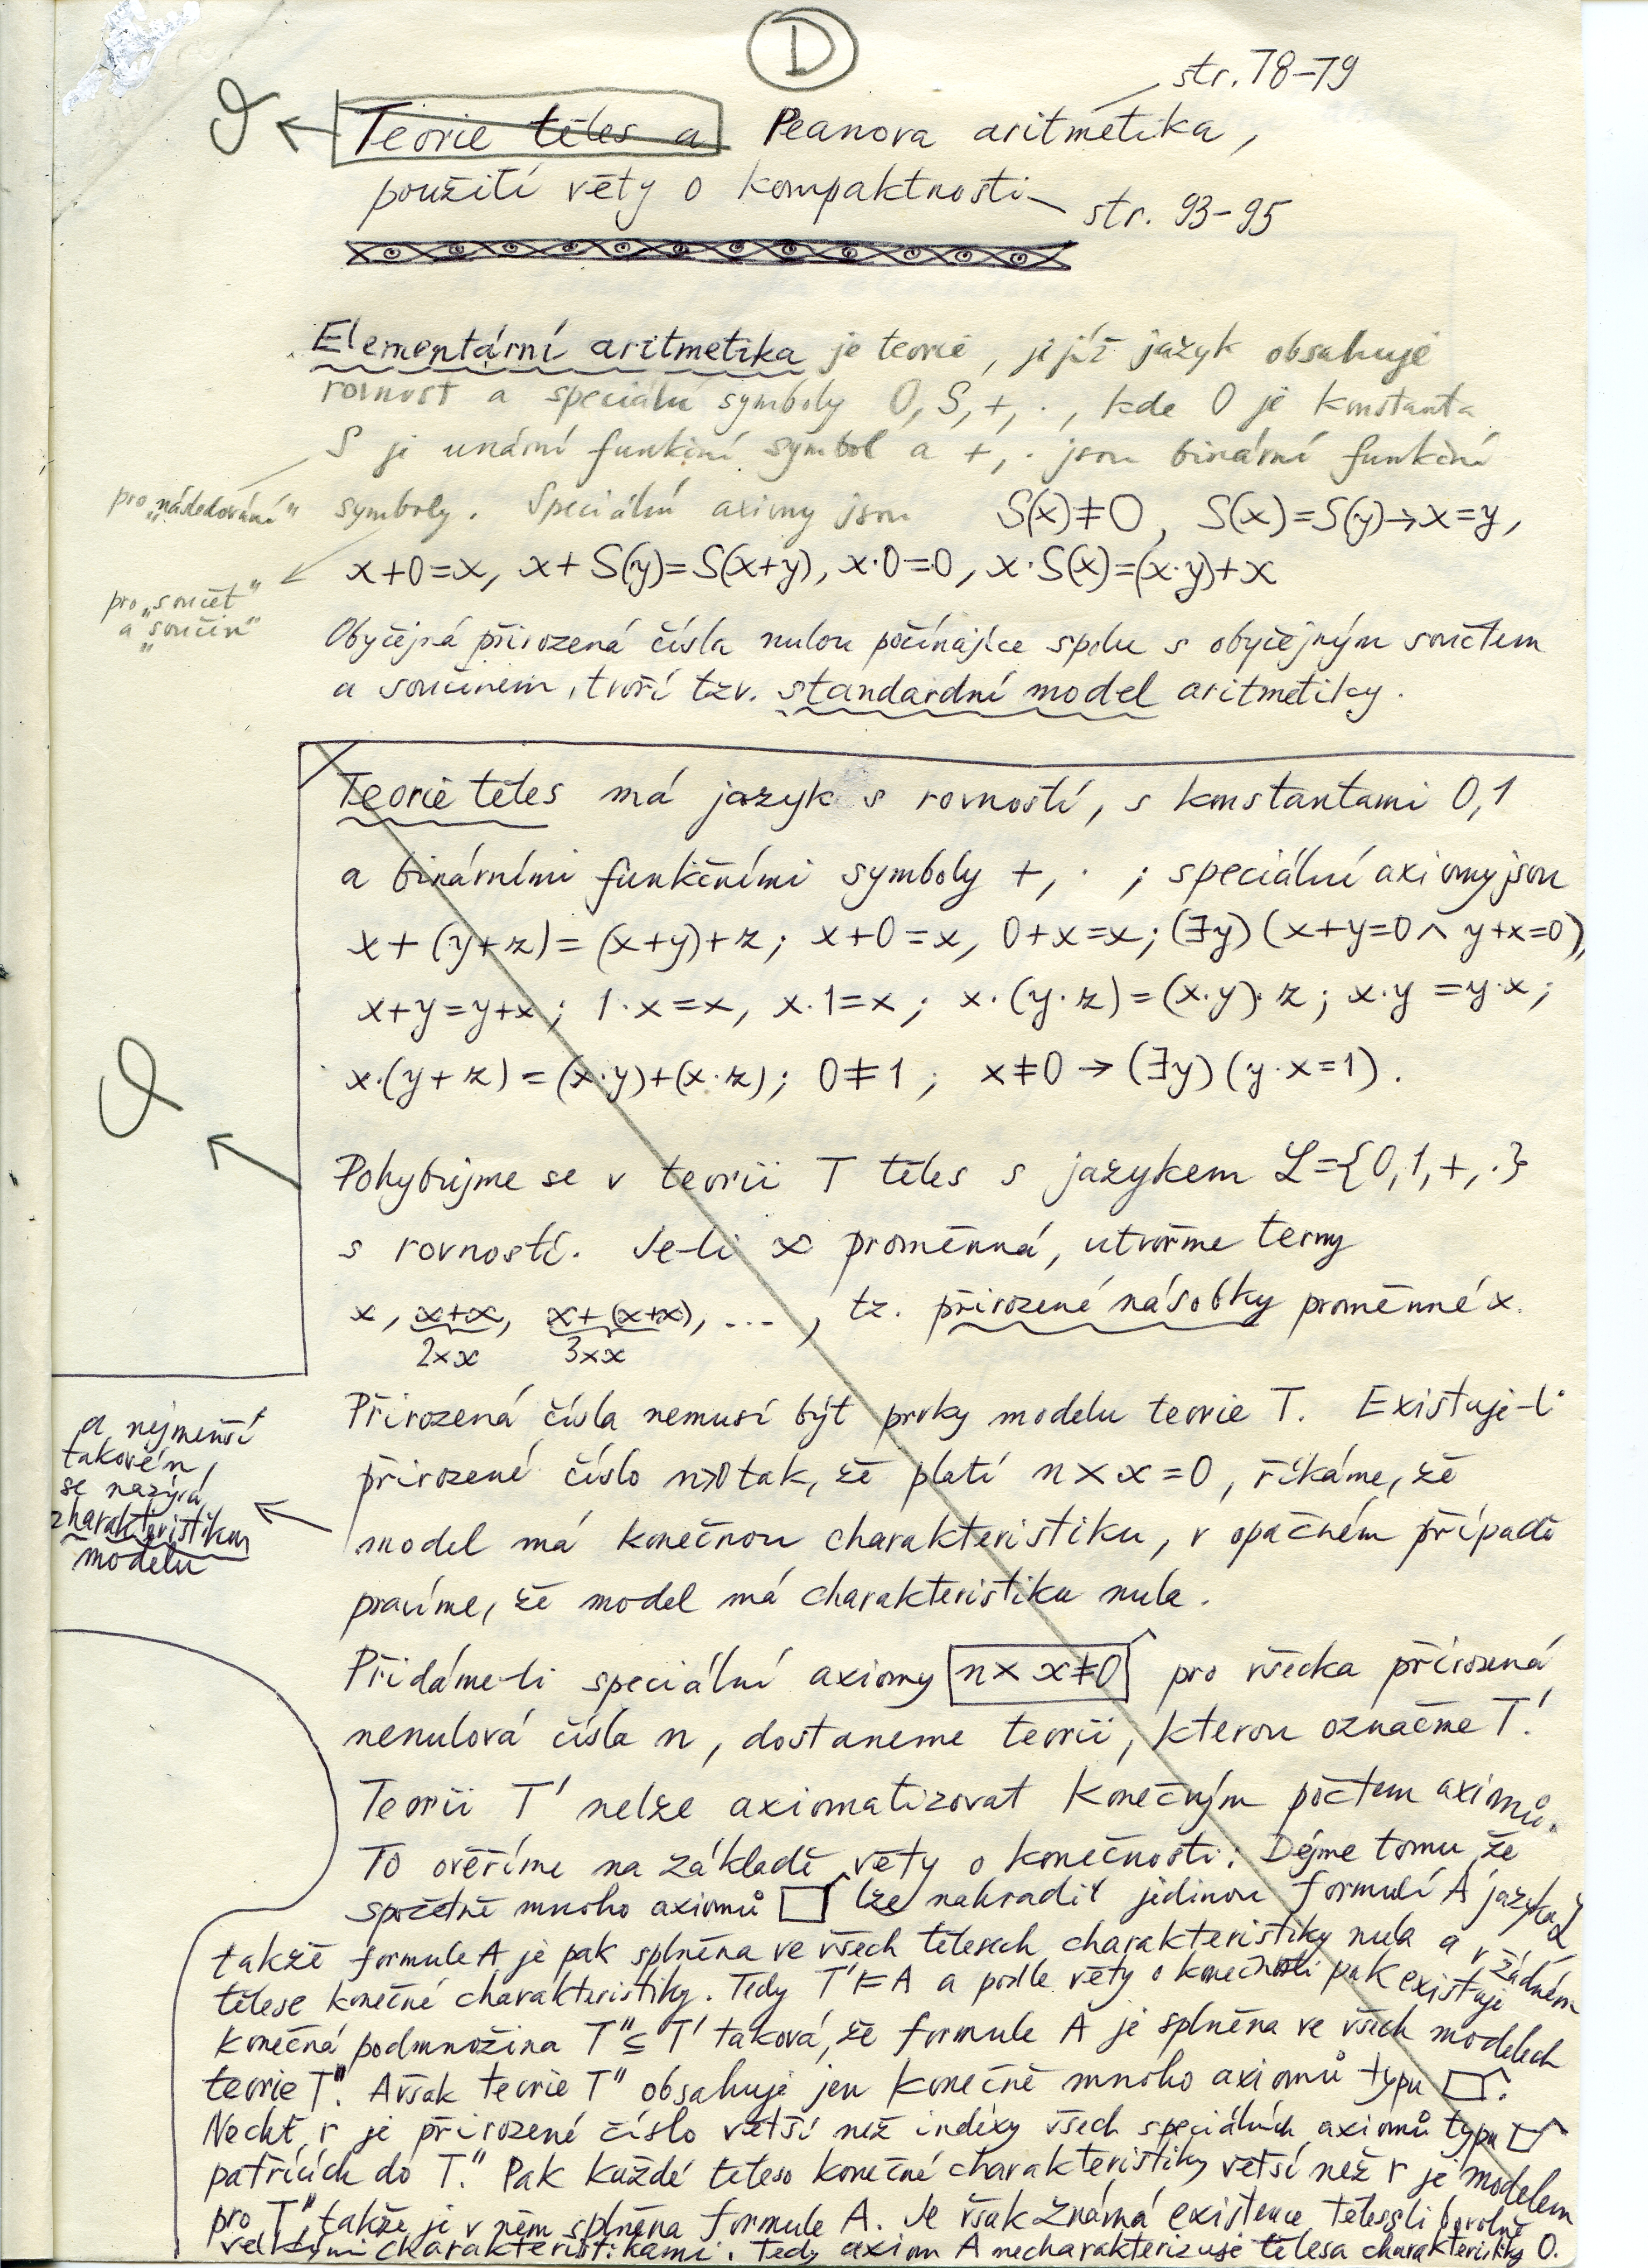 D
str. 78-79
Teorie těles a Peanova aritmetika,
použití věty o kompaktnosti
str. 93-95
Elementární aritmetika je teorie, jejíž jazyk obsahuje
rovnost a speciální symboly 0, S, +, ·, kde 0 je konstanta
S je unární funkční symbol a +, · jsou binární funkční
pro „následování" symboly. Speciální axiomy jsou S(x)≠0, S(x)=S(y)→x=y,
x+0=x, x+S(y)=S(x+y), x·0=0, x·S(x)=(x·y)+x
pro „součet"
a „součin"
Obyčejná přirozená čísla nulou počínajíce spolu s obyčejným součtem
a součinem, tvoří tzv. standardní model aritmetiky.
Teorie těles má jazyk s rovností, s konstantami 0,1
a binárními funkčními symboly +, · ; speciální axiomy jsou
x+(y+z)=(x+y)+z; x+0=x, 0+x=x; (∃y)(x+y=0∧y+x=0),
x+y=y+x; 1·x=x, x·1=x; x·(y·z)=(x·y)·z; x·y=y·x;
x·(y+z)=(x·y)+(x·z); 0≠1; x≠0→(∃y)(y·x=1).
Pohybujme se v teorii T těles s jazykem L={0,1,+,·}
s rovností. Je-li x proměnná, utvořme termy
x, x+x, x+(x+x), ..., tz. přirozené násobky proměnné x.
2×x 3×x
Přirozená čísla nemusí být prvky modelu teorie T. Existuje-li
přirozené číslo n>0 tak, že platí n×x=0, říkáme, že
model má konečnou charakteristiku, v opačném případě
pravíme, že model má charakteristiku nula.
a nejmenší
takové n,
se nazývá
charakteristikou
modelu
Přidáme-li speciální axiomy n×x≠0 pro všecka přirozená
nenulová čísla n, dostaneme teorii, kterou označme T'.
Teorii T' nelze axiomatizovat konečným počtem axiomů.
To ověříme na základě věty o konečnosti: Dejme tomu, že
spočetně mnoho axiomů □ lze nahradit jedinou formulí A jazyka L
takže formule A je pak splněna ve všech tělesech charakteristiky nula a v žádném
tělese konečné charakteristiky. Tedy T'⊨A a podle věty o konečnosti pak existuje
konečná podmnožina T"⊆T' taková, že formule A je splněna ve všech modelech
teorie T". Avšak teorie T" obsahuje jen konečně mnoho axiomů typu □.
Nechť r je přirozené číslo větší než indexy všech speciálních axiomů typu □
patřících do T". Pak každé těleso konečné charakteristiky větší než r je modelem
pro T" takže je v něm splněna formule A. Je však známá existence těles s libovolně
velkými charakteristikami. Tedy axiom A necharakterizuje tělesa charakteristiky 0.